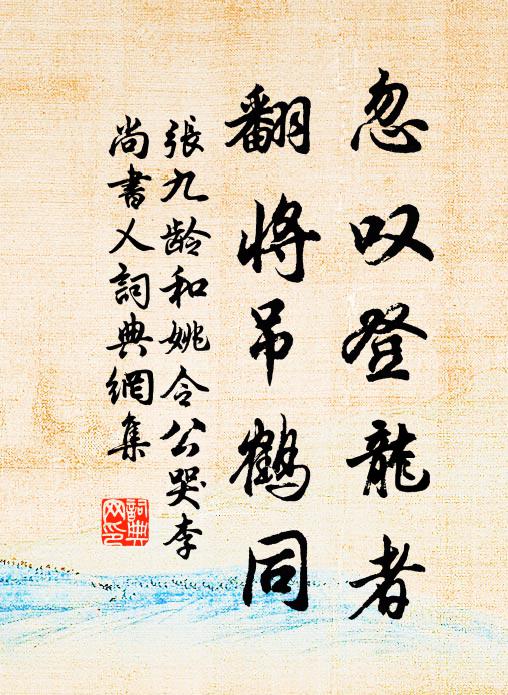 忽叹登龍者
翻将吊鶴同
張九龄和姚令公哭李
尚書乂詞典網集
詞典
网印